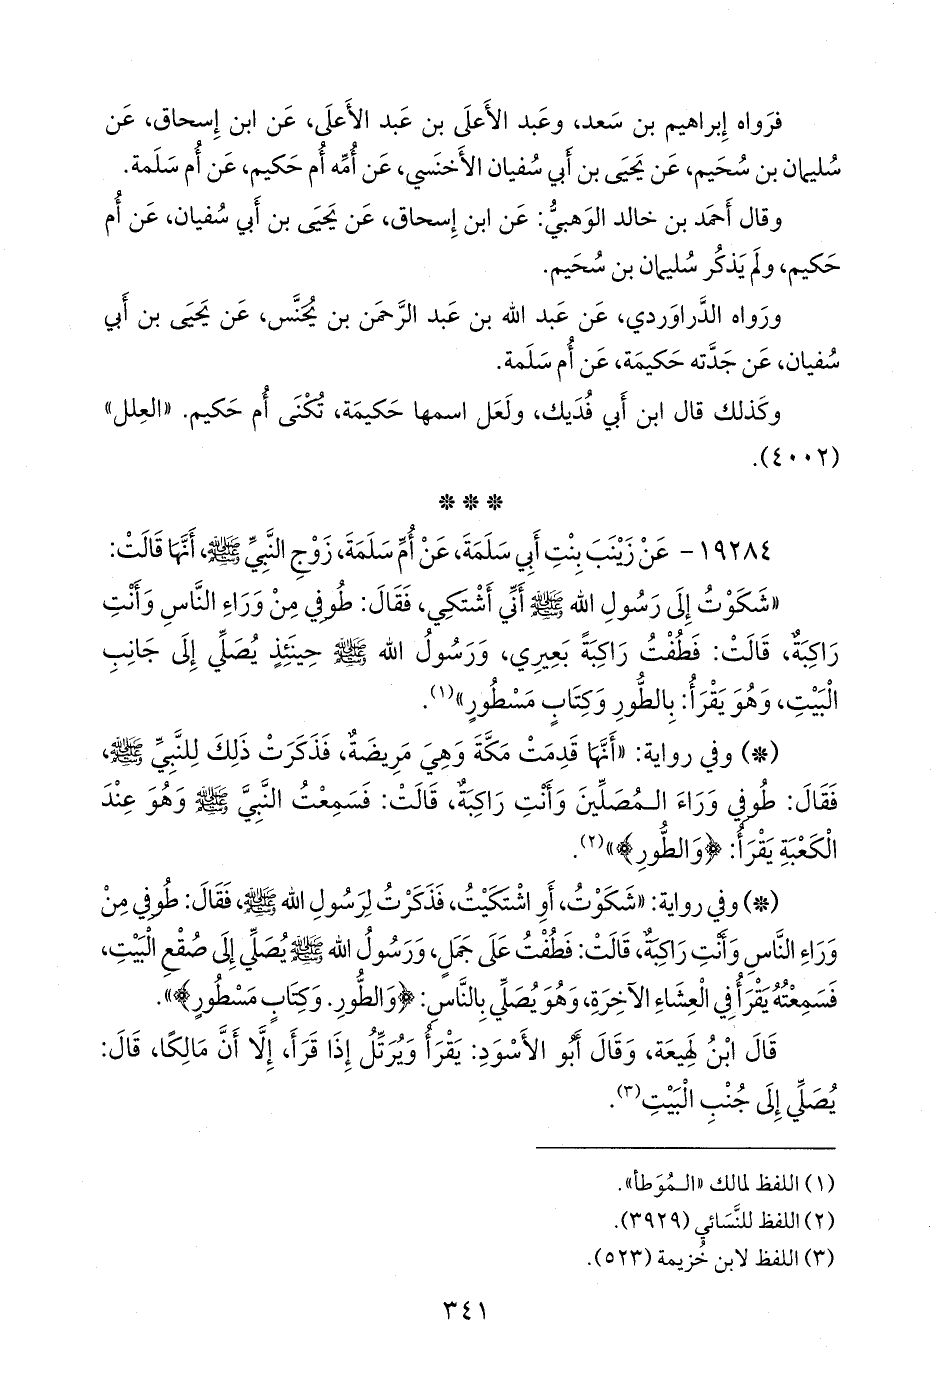 فرَواه إِبراهيم بن سَعد، وعَبد الأَعلَى بن عَبد الأَعلَى، عَن ابن إِسحاق، عَن
سُليمان بن سُحَيم، عَن يَحيَى بن أَبي سُفيان الأَخنَسي، عَن أُمِّه أُم حَكيم، عَن أُم سَلَمة.
وقال أَحمَد بن خالد الوَهبيُّ: عَن ابن إِسحاق، عَن يَحيَى بن أَبي سُفيان، عَن أُم
حَكيم، ولَم يَذكُر سُليمان بن سُحَيم.
ورَواه الدَّراوَردي، عَن عَبد الله بن عَبد الرَّحمَن بن يُحَنَّس، عَن يَحيَى بن أَبي
سُفيان، عَن جَدَّته حَكيمَة، عَن أُم سَلَمة.
وكَذلك قال ابن أَبي فُدَيك، ولَعَل اسمها حَكيمَة، تُكْنَى أُم حَكيم. «العِلل»
(٤٠٠٢).
* * *
١٩٢٨٤ - عَنْ زَيْنَبَ بِنْتِ أَبِي سَلَمَةَ، عَنْ أُمِّ سَلَمَةَ، زَوْجِ النَّبِيِّ ﷺ، أَنَّهَا قَالَتْ:
«شَكَوْتُ إِلَى رَسُولِ الله ﷺ أَنِّي أَشْتَكِي، فَقَالَ: طُوفِي مِنْ وَرَاءِ النَّاسِ وَأَنْتِ
رَاكِبَةٌ، قَالَتْ: فَطُفْتُ رَاكِبَةً بَعِيرِي، وَرَسُولُ الله ﷺ حِينَئِذٍ يُصَلِّي إِلَى جَانِبِ
الْبَيْتِ، وَهُوَ يَقْرَأُ: بِالطُّورِ وَكِتَابٍ مَسْطُورٍ»(١).
(*) وفي رواية: «أَنَّهَا قَدِمَتْ مَكَّةَ وَهِيَ مَرِيضَةٌ، فَذَكَرَتْ ذَلِكَ لِلنَّبِيِّ ﷺ،
فَقَالَ: طُوفِي وَرَاءَ الْمُصَلِّينَ وَأَنْتِ رَاكِبَةٌ، قَالَتْ: فَسَمِعْتُ النَّبِيَّ ﷺ وَهُوَ عِنْدَ
الْكَعْبَةِ يَقْرَأُ: ﴿وَالطُّورِ﴾»(٢).
(*) وفي رواية: «شَكَوْتُ، أَوِ اشْتَكَيْتُ، فَذَكَرْتُ لِرَسُولِ الله ﷺ، فَقَالَ: طُوفِي مِنْ
وَرَاءِ النَّاسِ وَأَنْتِ رَاكِبَةٌ، قَالَتْ: فَطُفْتُ عَلَى جَمَلٍ، وَرَسُولُ الله ﷺ يُصَلِّي إِلَى صُقْعِ الْبَيْتِ،
فَسَمِعْتُهُ يَقْرَأُ فِي الْعِشَاءِ الآخِرَةِ، وَهُوَ يُصَلِّي بِالنَّاسِ: ﴿وَالطُّورِ. وَكِتَابٍ مَسْطُورٍ﴾».
قَالَ ابْنُ لَهِيعَة، وَقَالَ أَبُو الأَسْوَدِ: يَقْرَأُ وَيُرَتِّلُ إِذَا قَرَأَ، إِلَّا أَنَّ مَالِكًا، قَالَ:
يُصَلِّي إِلَى جُنْبِ الْبَيْتِ(٣).
(١) اللفظ لمالك «الـمُوَطأ».
(٢) اللفظ للنَّسَائي (٣٩٢٩).
(٣) اللفظ لابن خُزيمة (٥٢٣).
٣٤١